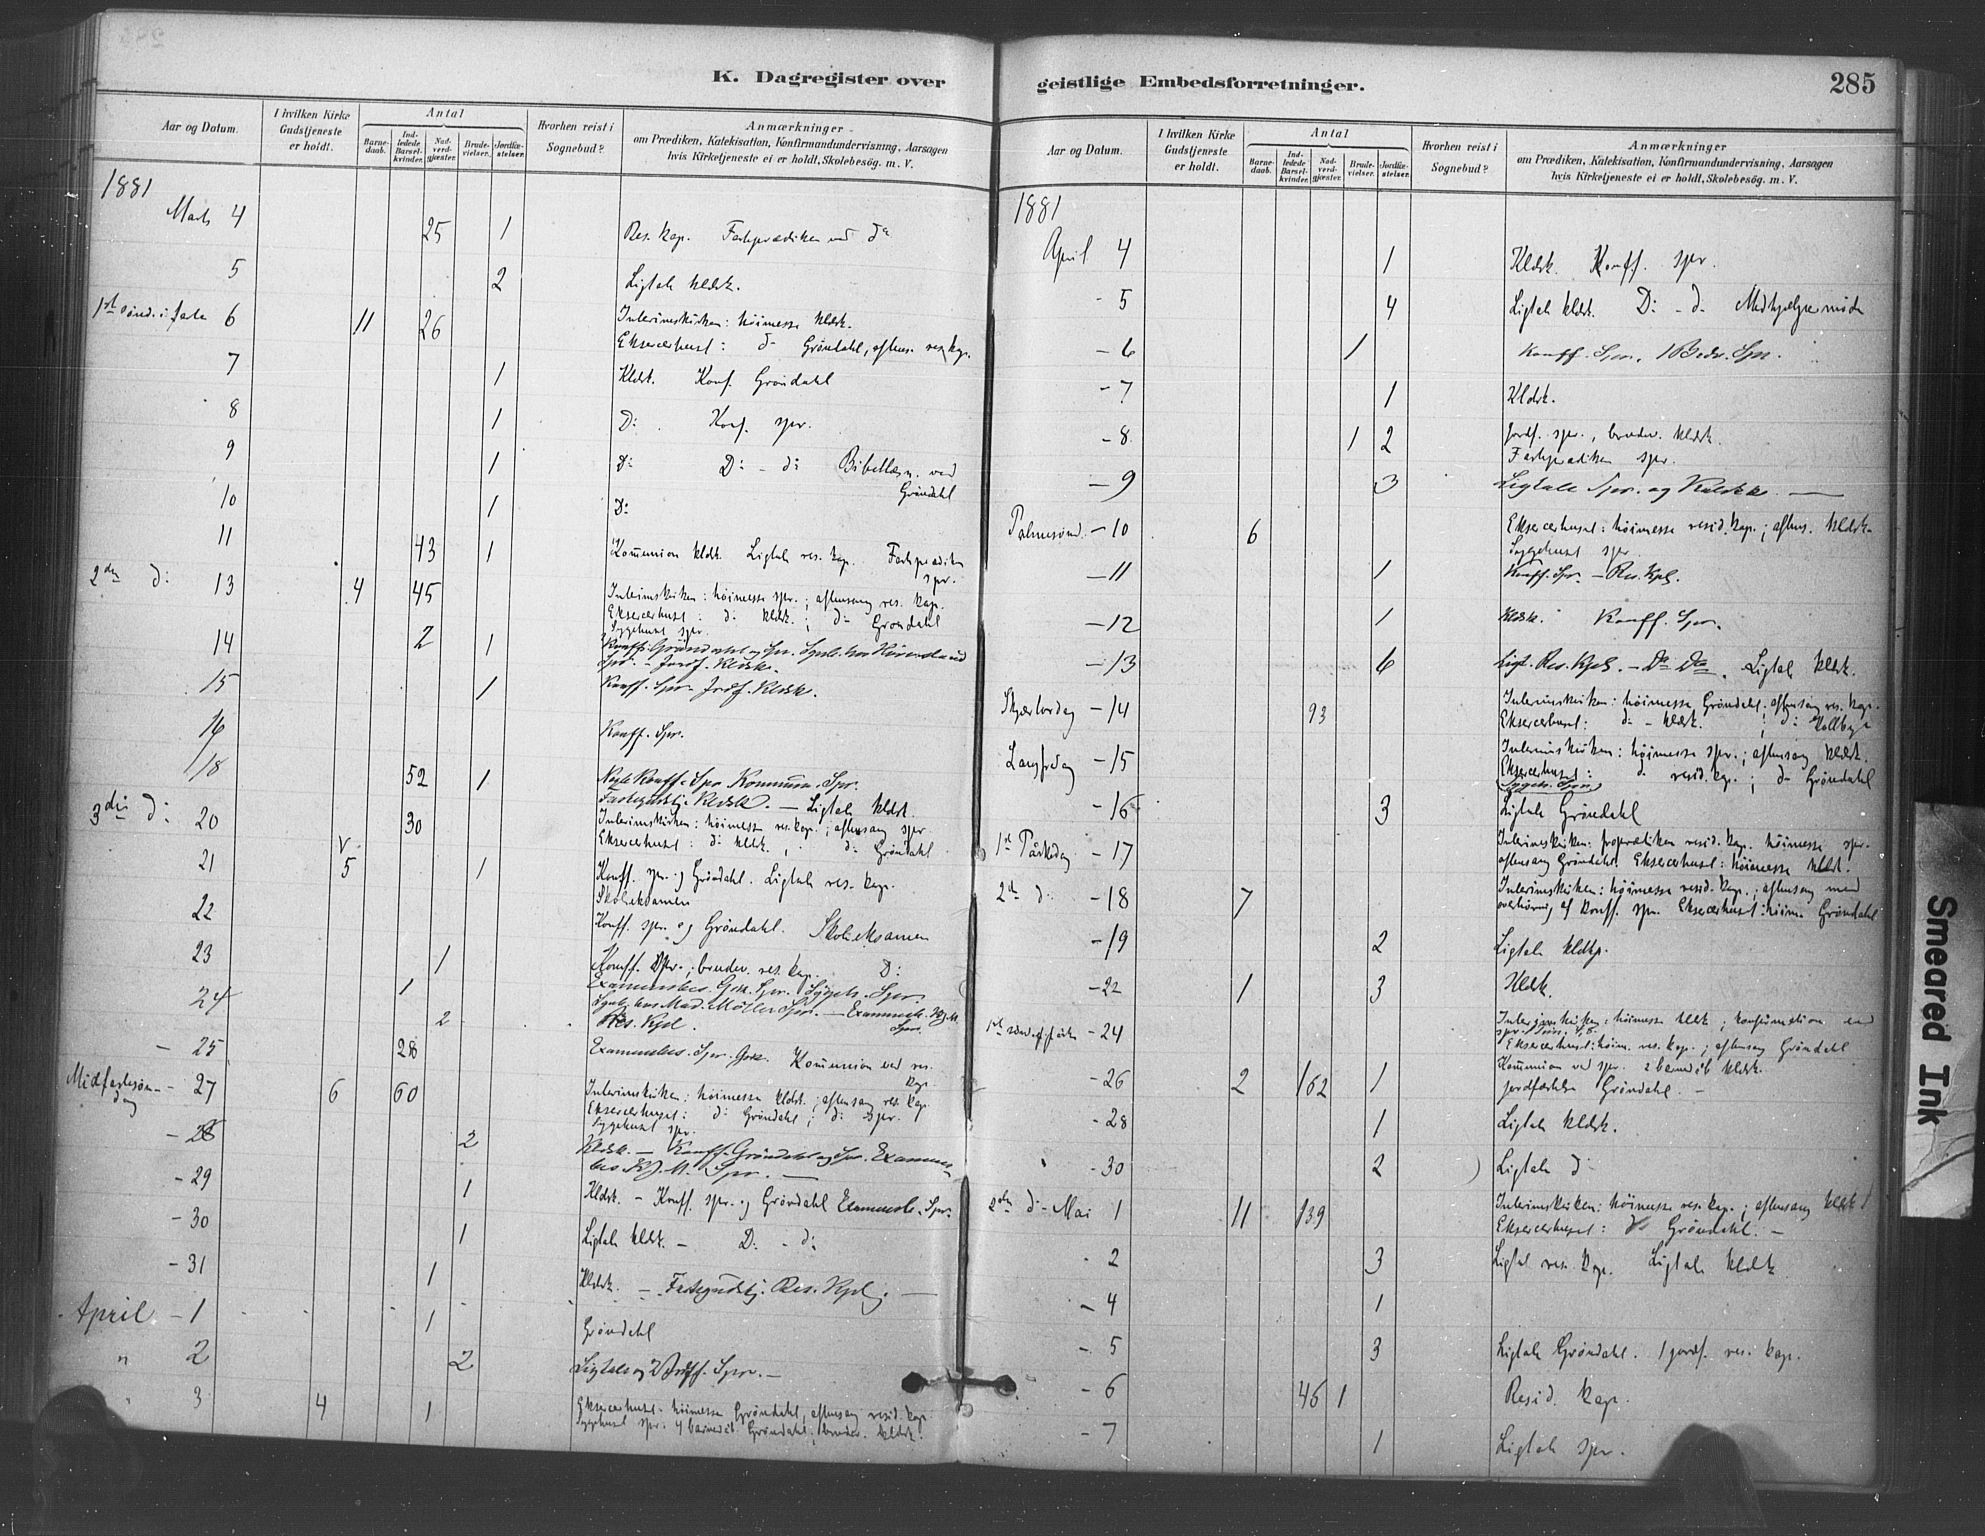 K. Dagregister over
Aar og Datum.
I hvilken Kirke
Gudstjeneste
er holdt.
Antal
Barne-
daab.
Ind-
ledede
Barsel-
kvinder.
Nad-
verd-
gjæster.
Brude-
vielser.
Jordfæ-
stelser.
Hvorhen reist i
Sognebud?
Anmærkninger
om Prædiken, Katekisation, Konfirmandundervisning, Aarsagen
hvis Kirketjeneste ei er holdt, Skolebesög. m. V.
1881
Marts 4 25 1 Res. kap. Fasteprædiken ved do
5 2 Ligtale kldsk.
1st Sønd. i faste 6 11 26 Interimskirken: høimesse kldsk.
Eksercerhuset: d: Grøndahl, aftens. res. kap.
7 1 Kldsk. Konf. Grøndahl
8 1 D: Konf. spr.
9 1 D: D: - d: Bibellæsn. ved
Grøndahl
10 1 D:
11 43 1 Kommunion kldsk. Ligtale res. kap. Fasteprædiken
spr.
2den d: 13 4 45 Interimskirken: høimesse spr.; aftensang res. kap.
Eksercerhuset: d: kldsk.; d: Grøndahl
Sygehuset spr.
14 2 1 Konff. Grøndahl og Spr.
Spr. - Jordf. Kldsk.
15 1 Konff. Spr. Jrdf. Kldsk.
16 Konff. Spr.
18 52 1 Konff. Spr. Kommun. Spr.
Fastegudstj. Kldsk. — Ligtale kldsk.
3die d: 20 30 Interimskirken: høimesse res. kap.; aftensang spr.
Eksercerhuset: d: kldsk.; d: Grøndahl
21 v 5 1 Konff. spr. og Grøndahl. Ligtale res. kap.
Skoleeksamen
22 Konff. spr. og Grøndahl. Skoleeksamen
23 1 Konff. Spr.; brudev. res. kap. D:
24 1 Examensbes. Spr. Sygeh. Spr.
2 Møller Spr. — Spr.
Res. Kpl.
- 25 28 Examensbes. Spr. Kommunion ved res.
kap.
Midfastesøn-
dag - 27 6 60 Interimskirken: høimesse kldsk.; aftensang res. kap.
Eksercerhuset: d: Grøndahl; d: spr.
Sygehuset spr.
- 28 2 Kldsk. — Konff. Grøndahl og Spr. Examens-
bes. Spr. —
- 29 1 Kldsk. - Konff. spr. og Grøndahl Spr.
- 30 1 Ligtale kldsk. - D: - d:
- 31 1 Kldsk. — Fastegudstj. Res. Kpl. —
April - 1 1 Grøndahl
" 2 2 Ligtale og Jrdff. Spr. —
" 3 4 1 Eksercerhuset: høimesse Grøndahl, aftensang resid. kap.
Sygehuset spr. 4 barnedåb Grøndahl; brudev. kldsk.
geistlige Embedsforretninger.
285
Aar og Datum.
I hvilken Kirke
Gudstjeneste
er holdt.
Antal
Barne-
daab.
Ind-
ledede
Barsel-
kvinder.
Nad-
verd-
gjæster.
Brude-
vielser.
Jordfæ-
stelser.
Hvorhen reist i
Sognebud?
Anmærkninger
om Prædiken, Katekisation, Konfirmandundervisning, Aarsagen
hvis Kirketjeneste ei er holdt, Skolebesög. m. V.
1881
April 4 1 Kldsk. Konff. spr.
- 5 4 Ligtale kldsk. D: - d: Medhjælpermøde
- 6 1 Konff. Spr. 1 Brdv. Spr.
- 7 1 Kldsk.
- 8 1 2 Jordf. spr., brudev. kldsk.
Fasteprædiken spr.
- 9 3 Ligtale Spr. og Kldsk. —
Palmesønd. - 10 6 Eksercerhuset: høimesse resid. kap.; aftens. kldsk.
Sygehuset spr.
- 11 1 Konff. Spr. — Res. Kpl.
- 12 1 Kldsk. Konff. Spr.
- 13 6 Ligt. Res. Kpl. - Do Do. Ligtale kldsk.
Skjærtorsdag - 14 93 Interimskirken: høimesse Grøndahl; aftensang res. kap.
Eksercerhuset: d: - kldsk. ; d:
Langfredag - 15 Interimskirken: høimesse spr.; aftensang kldsk.
Eksercerhuset: d: resid. kap.; d: Grøndahl
Sygeh. Spr.
- 16 3 Ligtale Grøndahl
1st Påskedag - 17 Interimskirken: froprædiken resid. kap. høimesse spr.
aftensang Grøndahl. Eksercerhuset: høimesse kldsk.
2den d: - 18 7 Interimskirken: høimesse resid. kap.; aftensang med
overhøring af konff. spr. Eksercerhuset: høim. Grøndahl
- 19 2 Ligtale kldsk.
- 22 1 3 Kldsk.
1st sønd. eft. påske - 24 Interimskirken: høimesse kldsk.; konfirmation ved
spr.
Eksercerhuset: høim. res. kap.; aftensang Grøndahl
- 26 2 162 1 Kommunion ved spr. 2 barnedåb kldsk.
jordfæstelse Grøndahl. -
- 28 1 Ligtale kldsk.
- 30 2 Ligtale d:
2den d: - Mai 1 11 139 Interimskirken: høimesse res. kap.; aftensang kldsk.
Eksercerhuset: d: Grøndahl. -
- 2 3 Ligtale res. kap. Ligtale kldsk.
- 4 1
- 5 3 Ligtale Grøndahl. 1 jordf. res. kap.
- 6 46 1 Resid. kap.
- 7 1 Ligtale spr.
Smeared Ink